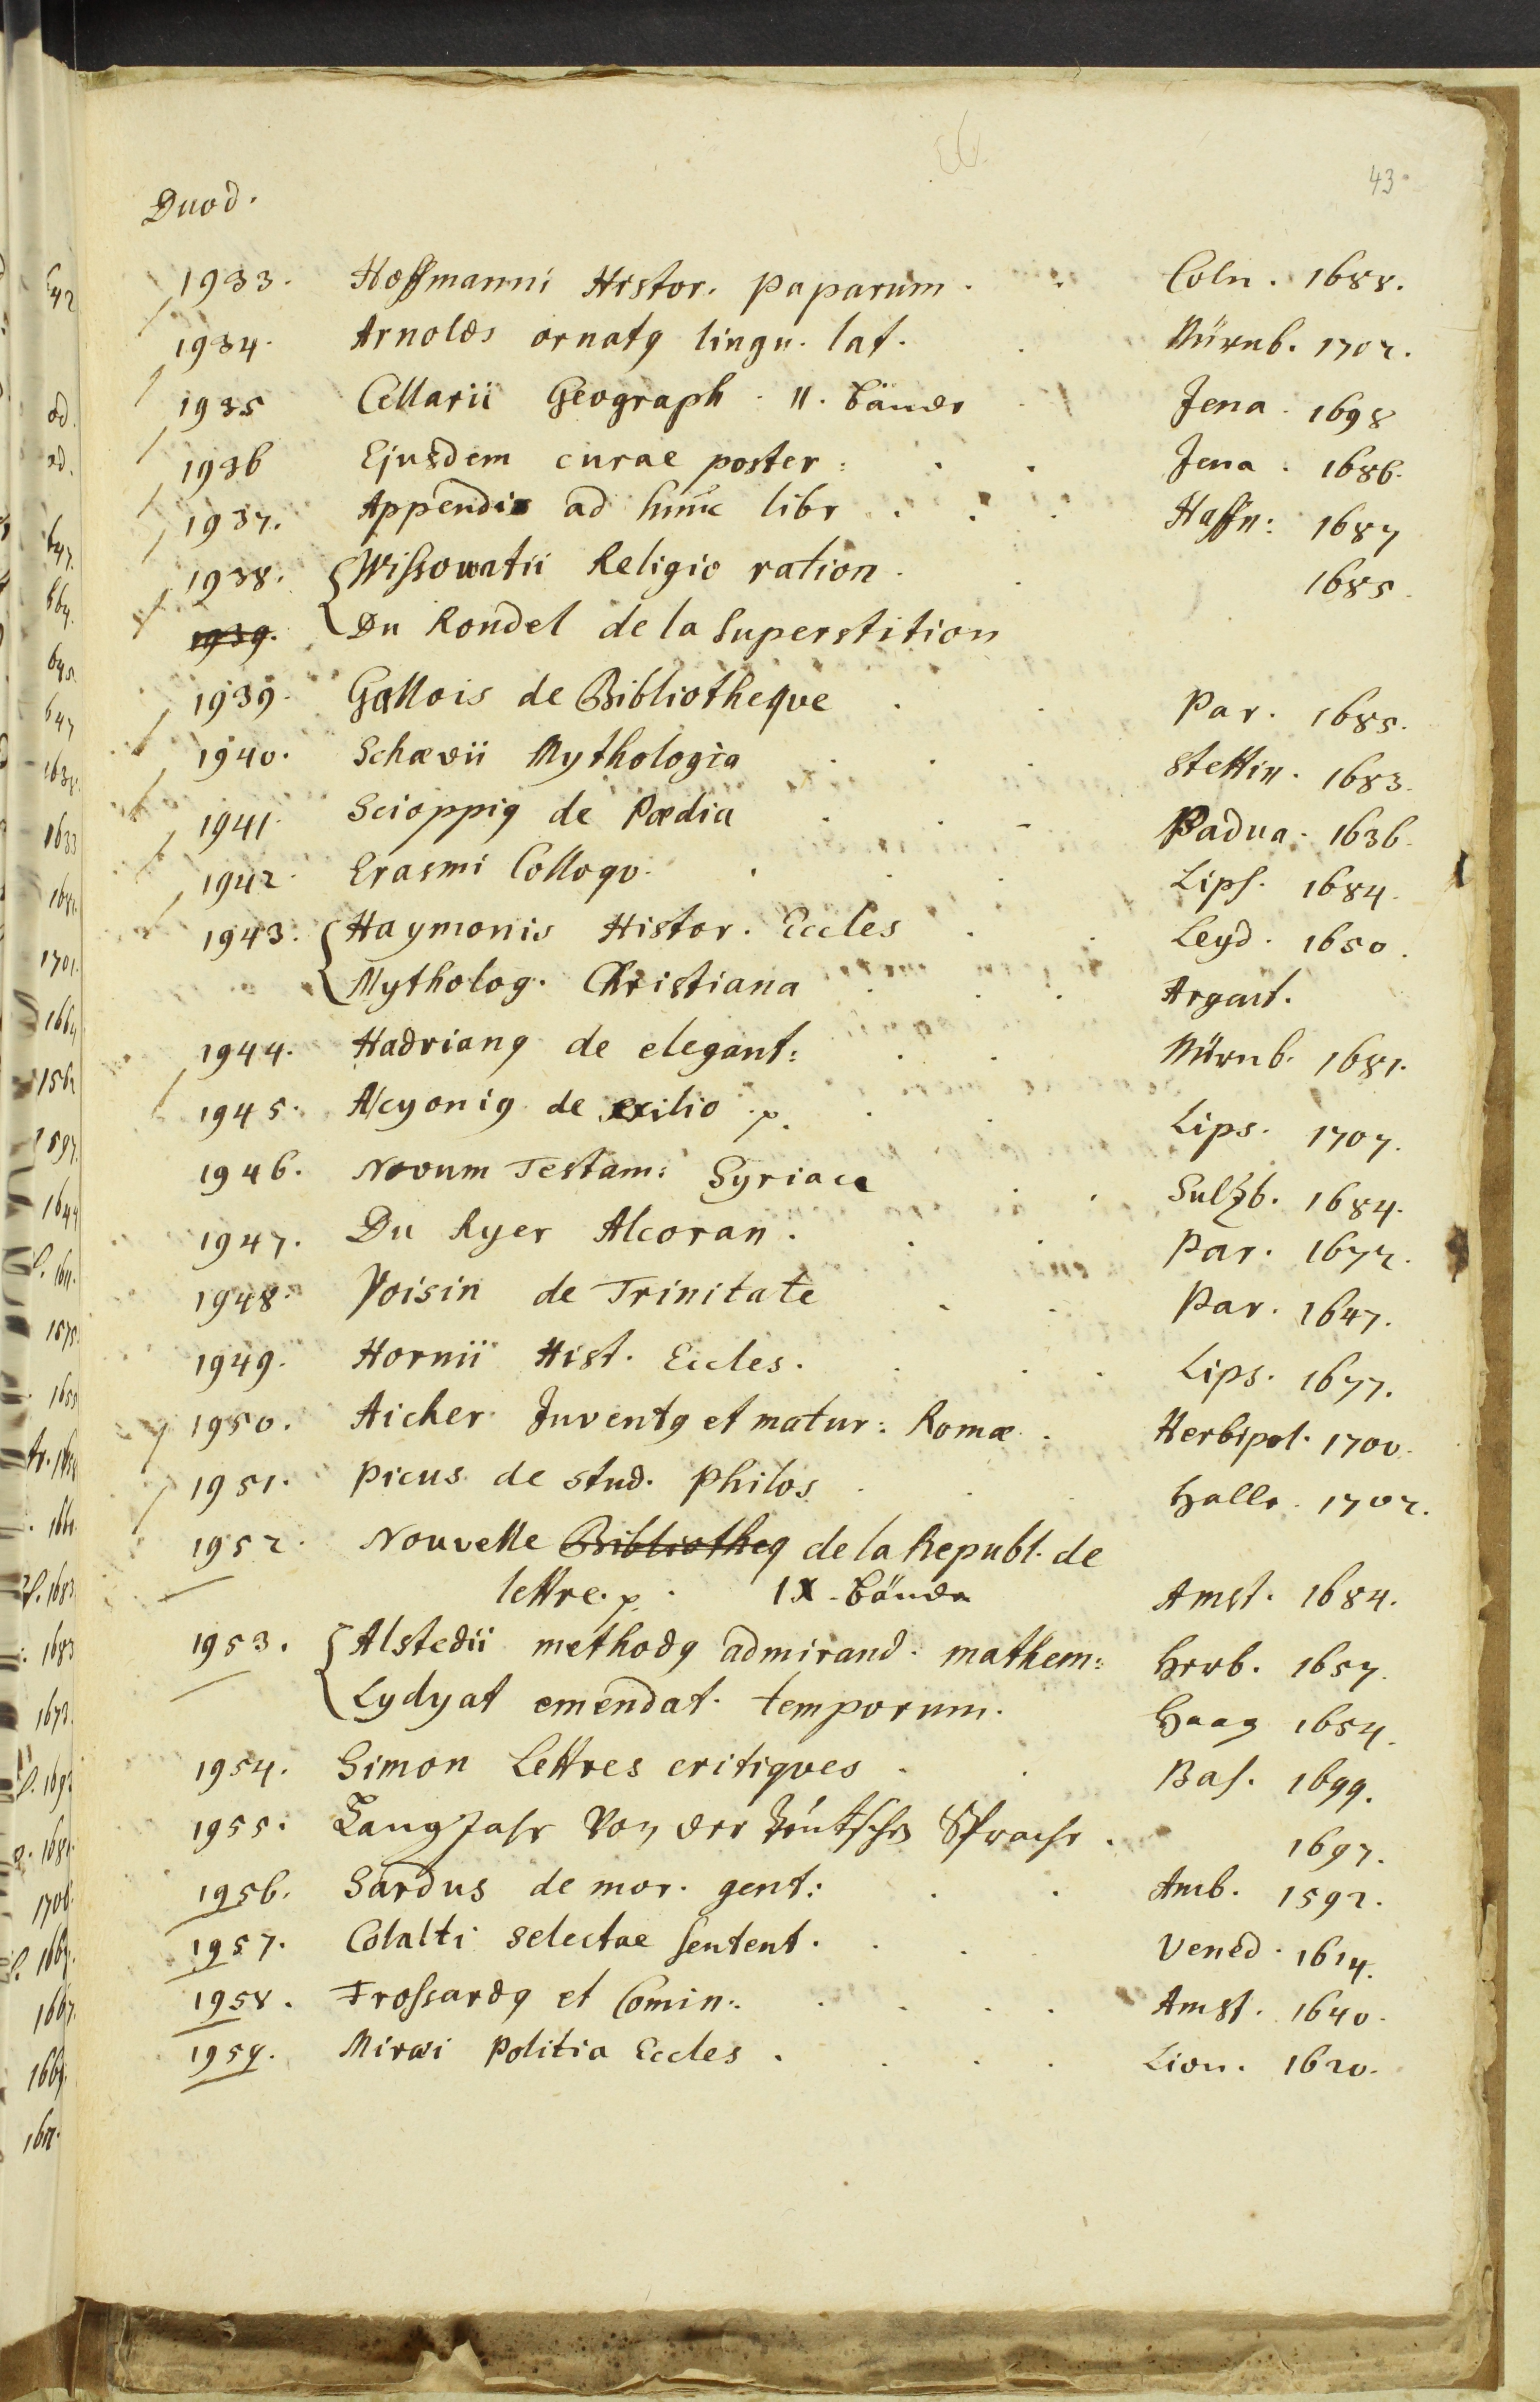 43.
Duod.
1933. Hoffmanni Histor. paparum. Coln. 1688.
1934. Arnolds ornatq lingu. lat. Nürnb. 1702.
1935 Cellarii Geograph. II. Bände Jena. 1698
1936 Ejusdem curae poster: Jena. 1686.
1937. Appendix ad hunc libr. Haffn: 1687
1938. Wissowatii Religio ration. 1685.
1939. Du Rondel de la Superstition
1939. Gallois de Bibliotheque Par. 1685.
1940. Schævii Mythologia Stettin. 1683.
1941. Scioppiq de Pædia Padua. 1636.
1942. Erasmi Colloqv. Lips. 1684.
1943. Haymonis Histor. Eccles Leyd. 1650.
Mytholog. Christiana Argent.
1944. Hadrianq de elegant: Nürnb. 1681.
1945. Alcyoniq de exilio p. Lips. 1707.
1946. Novum Testam: Syriace Sulzb. 1684.
1947. Du Ryer Alcoran. Par. 1672.
1948. Voisin de Trinitate Par. 1647.
1949. Hornii Hist. Eccles. Lips. 1677.
1950. Aicher Juventq et matur: Romæ. Herbipol. 1700.
1951. Picus de stud. Philos. Halle. 1702.
1952. Nouvelle Bibliotheq de la Republ. de
lettre. p. IX. Bände Amst. 1684.
1953. Alstedii methodq admirand. mathem: Herb. 1657.
Lydyat emendat. temporum. Haag 1654.
1954. Simon Lettres critiques. Bas. 1699.
1955. Langjahr von der Teutschen Sprache. 1697.
1956. Sardus de mor. gent: Amb. 1592.
1957. Colalti selectae sentent. Vened. 1614.
1958. Frossardq et Comin: Amst. 1640.
1959. Miræi Politia Eccles. Lion. 1620.